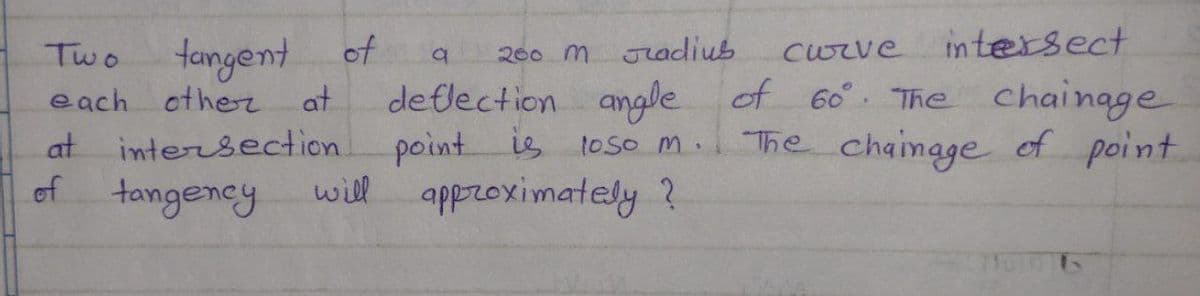 Two tangent of a 200 m radius curve intersect
each other at deflection angle of 60°. The chainage
at intersection point is 1050 m. The chainage of point
of tangency will approximately ?